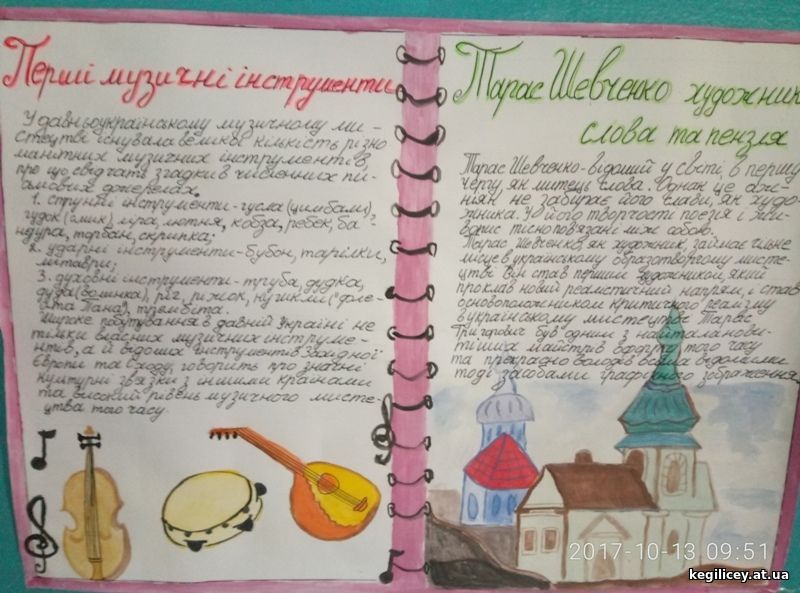 Перші музичні інструменти
У давньоукраїнському музичному ми-
стецтві існувала велика кількість різно
манітних музичних інструментів
про що свідчать згадки в численних пи-
семових джерелах.
1. струнні інструменти-гусла (цимбали),
гудок (смик), ліра, лютня, кобза, ребек, ба-
ндура, торбан, скрипка;
2. ударні інструменти-бубон, тарілки,
литаври;
3. духовні інструменти-труба, дудка,
дуда (волинка), ріг, ріжок, кугикли (флє-
йта Пана), трембіта.
Широке побутування в давній Україні не
тільки власних музичних інструме-
нтів, а й відоших інструментів Західної
Європи та Сходу, говорить про значні
культурні звязки з іншими країнами
та високий рівень музичного мисте-
цтва того часу.
Тарас Шевченко художник
слова та пензля
Тарас Шевченко-відомий у світі, в першу
чергу, як митець слова. Однак це аж-
ніян не забирає його слави, як худо-
жника. У його творчости поезія і жи-
вопис тісно повязані між собою.
Тарас Шевченко, як художник, займає чільне
місце в українському образотворчому мисте-
цтві. Він став першим художником, який
проклав новий реалистичний напрям, і став
основоположником критичного реалізму
в українському мистецтві Тарас
Григорович був одним з найталанови-
тіших майстрів офорту того часу
та прекрасно володів всіма відомими
тоді засобами графічного зображення.
2017-10-13 09:51
kegilicey.at.ua